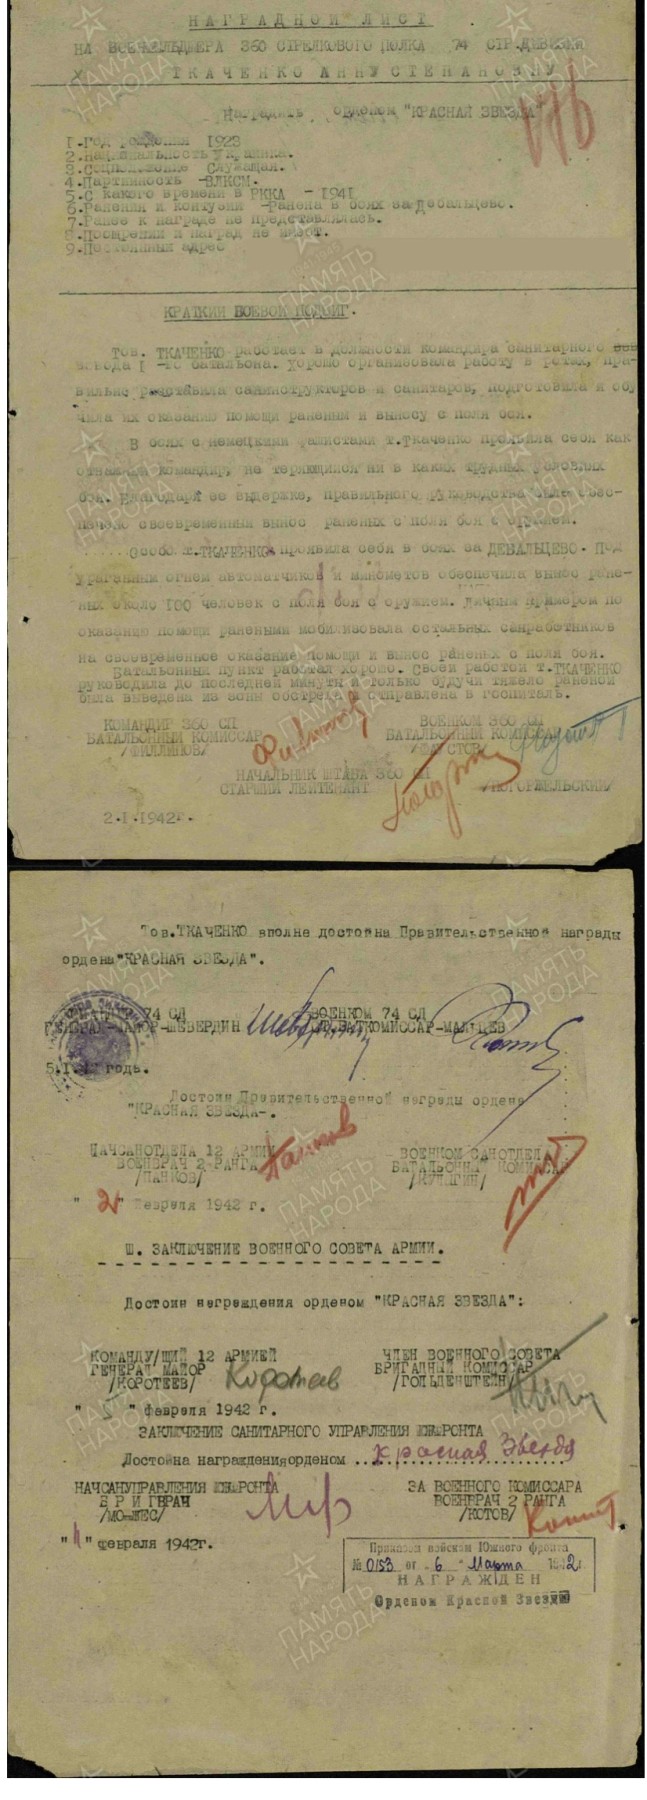 НАГРАДНОЙ ЛИСТ
НА ВОЕНФЕЛЬДШЕРА 360 СТРЕЛКОВОГО ПОЛКА 74 СТР.ДИВИЗИИ
ТКАЧЕНКО АННУ СТЕПАНОВНУ
Наградить орденом "КРАСНАЯ ЗВЕЗДА"
1.Год рождения 1923
2.Национальность Украинка.
3.Соцположение Служащая.
4.Партийность -ВЛКСМ.
5.С какого времени в РККА -1941
6.Ранения и контузии -Ранена в боях за Дебальцево.
7.Ранее к награде не представлялась.
8.Поощрений и наград не имеет.
9.Постоянных адрес
КРАТКИЙ БОЕВОЙ ПОДВИГ.
Тов. ТКАЧЕНКО работает в должности командира санитарного
взвода 1 -го батальона. Хорошо организовала работу в ротах, пра-
вильно расставила санинструкторов и санитаров, подготовила и обу
чила их оказанию помощи раненым и выносу с поля боя.
В боях с немецкими фашистами т.Ткаченко проявила себя как
отважный командир, не теряющийся ни в каких трудных условиях
боя. Благодаря ее выдержке, правильного руководства было обес-
печено своевременный вынос раненых с поля боя с оружием.
Особо т.ТКАЧЕНКО проявила себя в боях за ДЕБАЛЬЦЕВО. Под
ураганным огнем автоматчиков и минометов обеспечила вынос ране-
ных около 100 человек с поля боя с оружием. Личным примером по
оказанию помощи ранеными мобилизовала остальных санработников
на своевременное оказание помощи и вынос раненых с поля боя.
Батальонный пункт работал хорошо. Своей работой т.ТКАЧЕНКО
руководила до последней минуты и только будучи тяжело раненой
была выведена из зоны обстрела и отправлена в госпиталь.
КОМАНДИР 360 СП ВОЕНКОМ 360 СП
БАТАЛЬОННЫЙ КОМИССАР БАТАЛЬОННЫЙ КОМИССАР
/ФИЛИППОВ/ /ФАУСТОВ/
НАЧАЛЬНИК ШТАБА 360 СП
СТАРШИЙ ЛЕЙТЕНАНТ /ПОГОРЖЕЛЬСКИЙ/
2.I.1942г.
Тов.ТКАЧЕНКО вполне достойна Правительственной награды
ордена"КРАСНАЯ ЗВЕЗДА".
КОМАНДИР 74 СД ВОЕНКОМ 74 СД
ГЕНЕРАЛ-МАЙОР-ШЕВЕРДИН СТ.БАТКОМИССАР-МАЛЬЦЕВ
годь.
Достоин Правительственной награды ордена
"КРАСНАЯ ЗВЕЗДА-.
НАЧСАНОТДЕЛА 12 АРМИИ ВОЕНКОМ САНОТДЕЛА
ВОЕНВРАЧ 2 РАНГА БАТАЛЬОННЫЙ КОМИССАР
/ПАНКОВ/ /КУЛЫГИН/
"2" февраля 1942 г.
Ш. ЗАКЛЮЧЕНИЕ ВОЕННОГО СОВЕТА АРМИИ.
Достоин награждения орденом "КРАСНАЯ ЗВЕЗДА":
КОМАНДУ/ЩИЙ 12 АРМИЕЙ ЧЛЕН ВОЕННОГО СОВЕТА
ГЕНЕРАЛ МАЙОР БРИГАДНЫЙ КОМИССАР
/КОРОТЕЕВ/ Коротеев /ГОЛЬДЕНШТЕЙН/
"5" февраля 1942 г.
ЗАКЛЮЧЕНИЕ САНИТАРНОГО УПРАВЛЕНИЯ ЮЖФРОНТА
Достойна награжденияорденом Красная Звезда
НАЧСАНУПРАВЛЕНИЯ ЮЖФРОНТА ЗА ВОЕННОГО КОМИССАРА
БРИГВРАЧ ВОЕНВРАЧ 2 РАНГА
/КОТОВ/
"11" февраля 1942г.
Приказом войскам Южного фронта
№ 0153 от "6" Марта 1942г.
НАГРАЖДЕН
Орденом Красной Звезды
ПАМЯТЬ НАРОДА